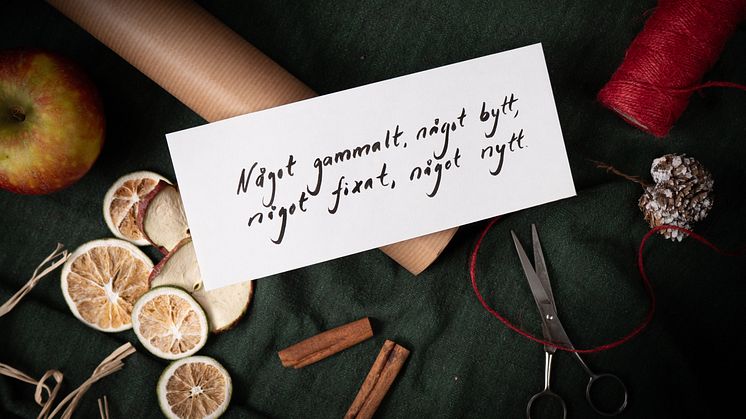 Något gammalt, något bytt,
något fixat, något nytt.